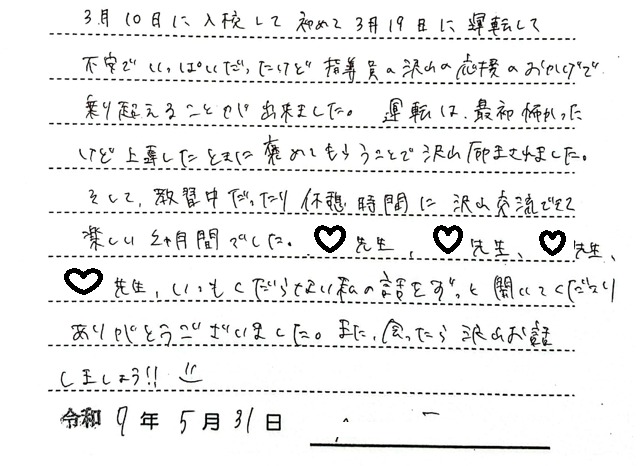 3月10日に入校して初めて3月19日に運転して
不安でいっぱいだったけど指導員の沢山の応援のおかげで
乗り超えることが出来ました。運転は、最初怖かった
けど上達したときに褒めてもらうことで沢山励まされました。
そして、教習中だったり休憩時間に沢山交流できて
楽しい2ヶ月間でした。♡先生、♡先生、♡先生、
♡先生、いつもくだらない私の話をずっと聞いてくださり
ありがとうございました。また、会ったら沢山お話
しましょう!!
令和7年5月31日